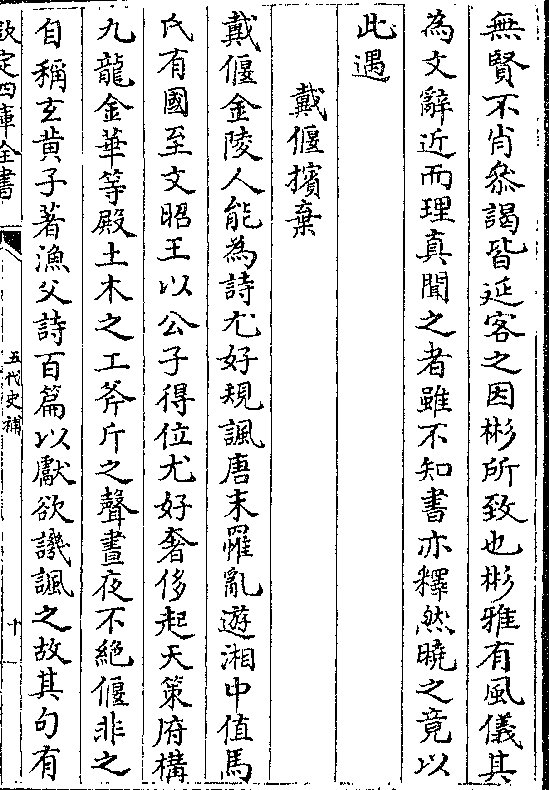 無賢不肖叅謁皆延客之因彬所致也彬雅有風儀其
為文辭近而理真聞之者雖不知書亦釋然曉之竟以
此遇
戴偃擯棄
戴偃金陵人能為詩尤好規諷唐末罹亂遊湘中值馬
氏有國至文昭王以公子得位尤好奢侈起天策府構
九龍金華等殿土木之工斧斤之聲晝夜不絶偃非之
自稱玄黄子著漁父詩百篇以獻欲譏諷之故其句有
欽定四庫全書
五代史補
十一